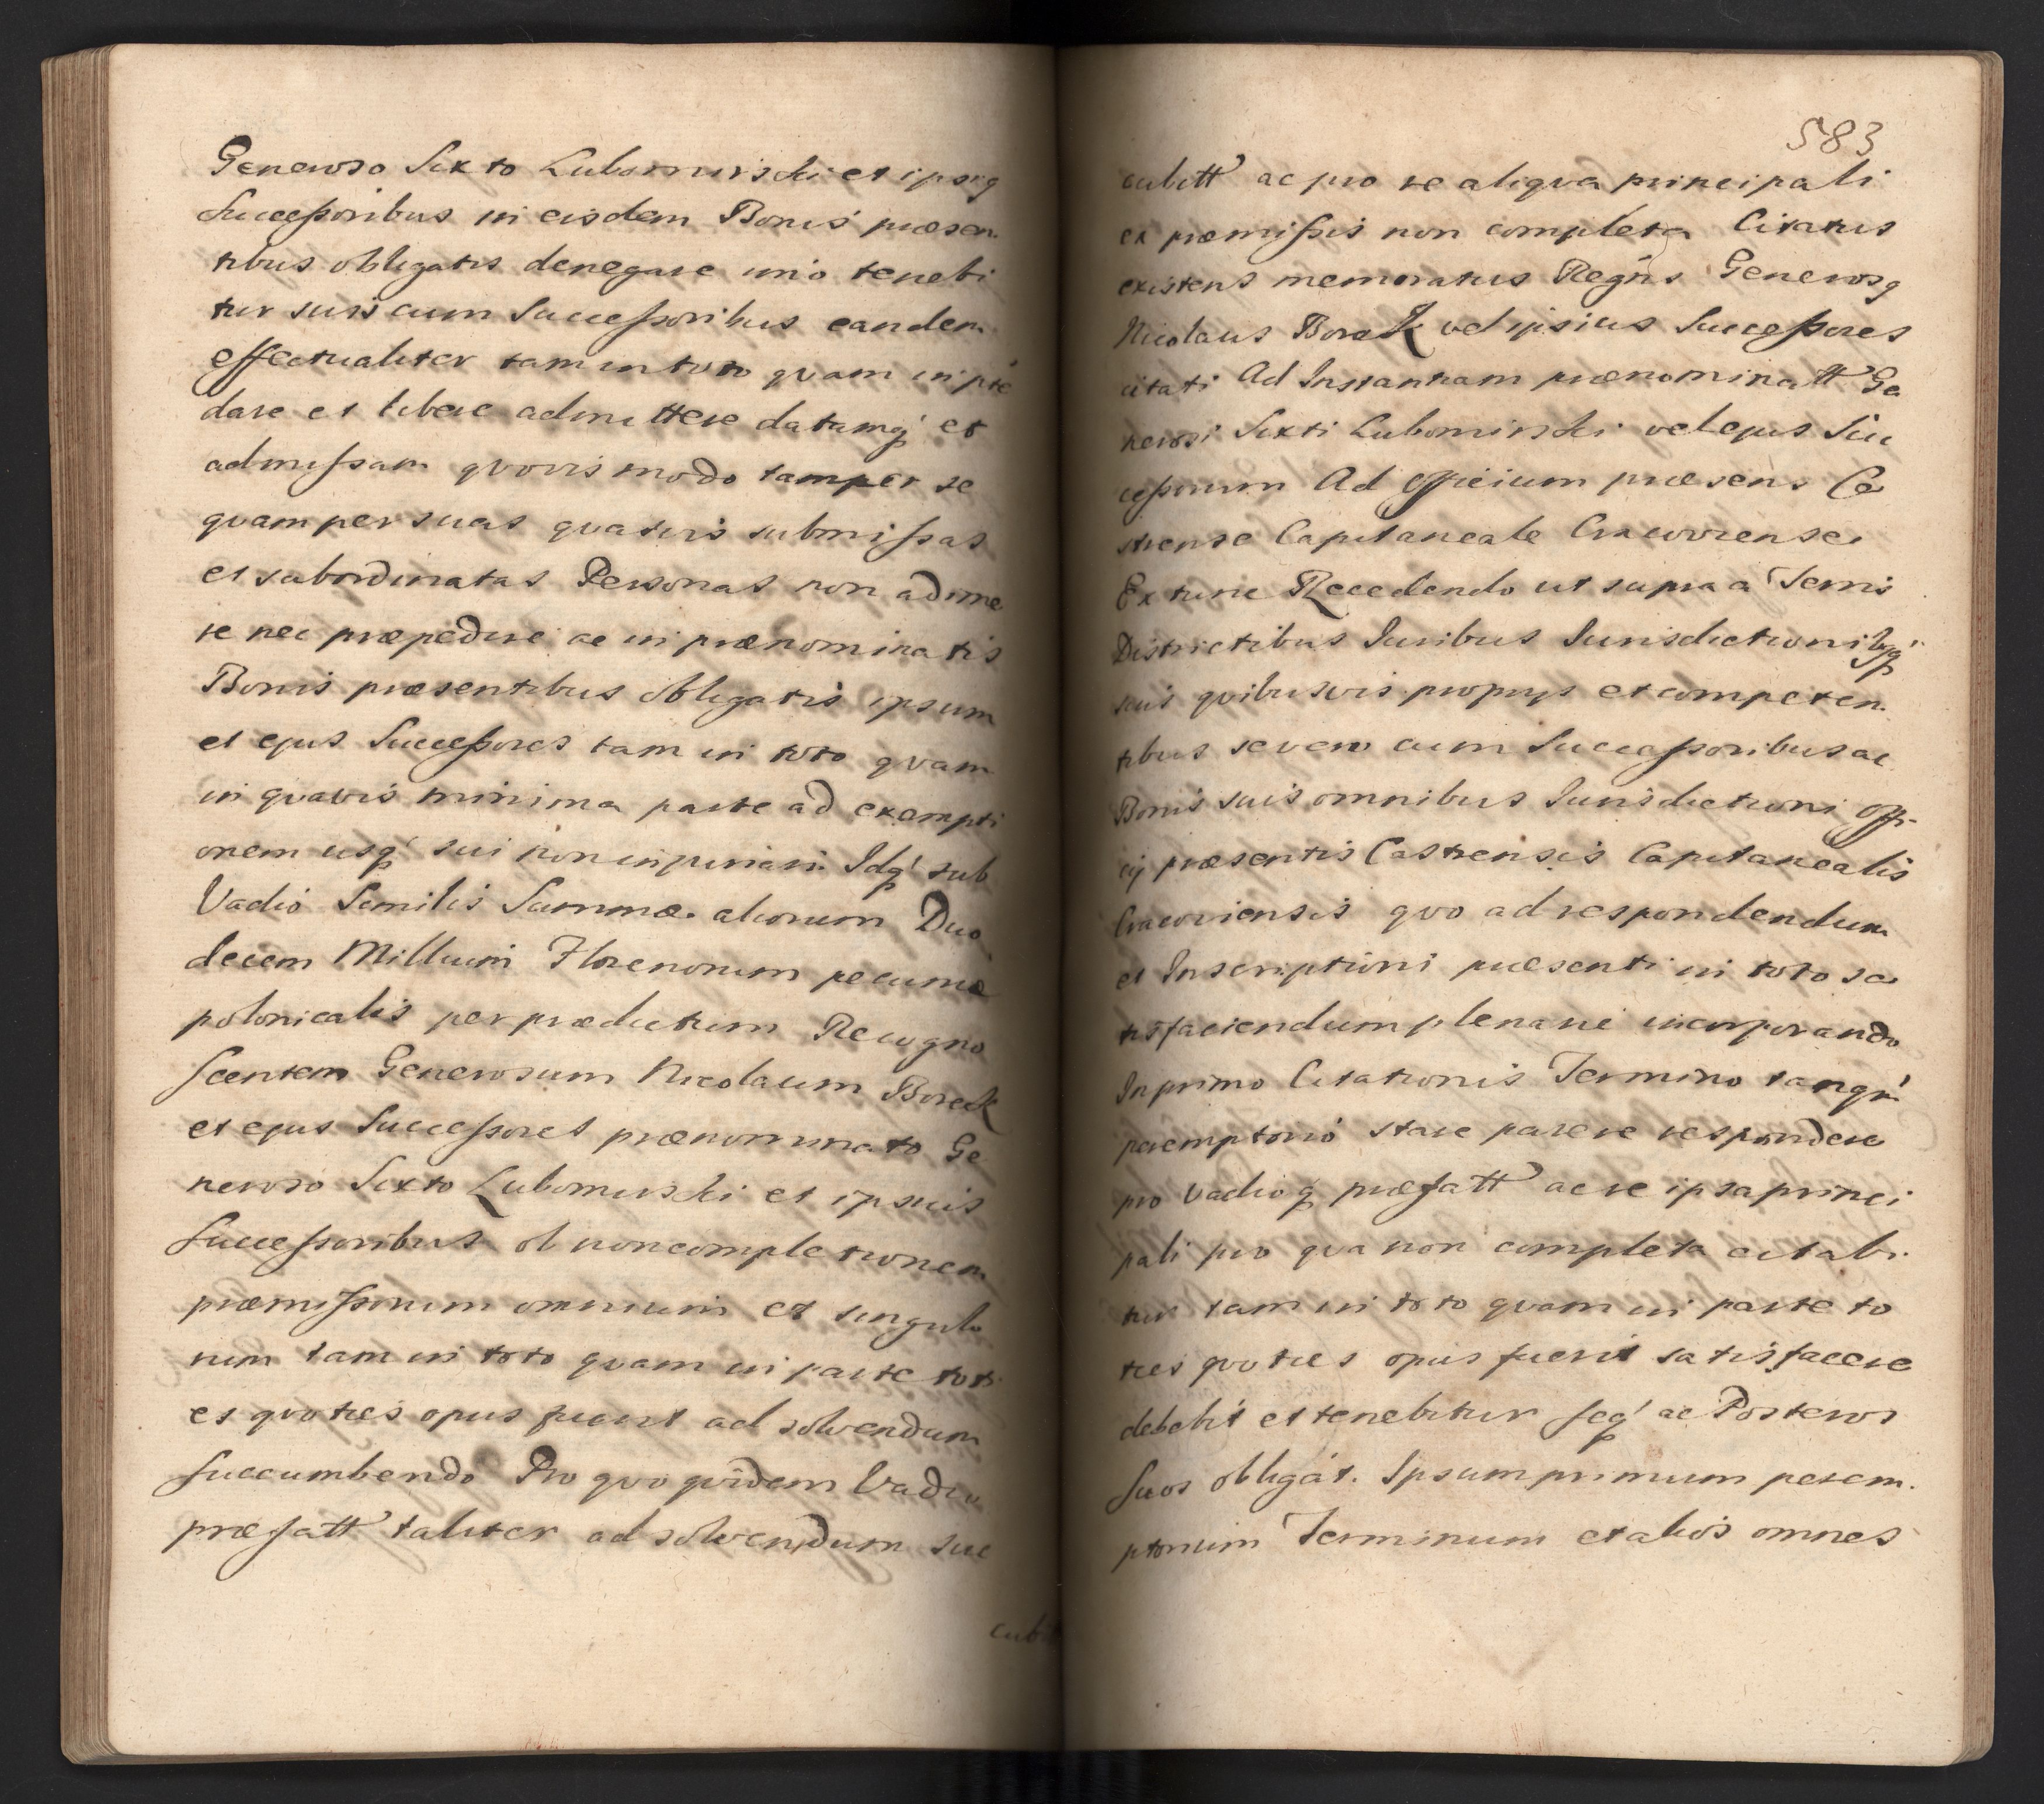 Generoso Sixto Lubomirski et ipsiq
Successoribus in eisdem Bonis præsen
tibus obligatis denegare imò tenebi
tur suis cum Successoribus eandem
effectualiter tam in toto qvam in pte
dare et libere admittere datamq́ et
admissam qvovis modo tam per se
qvam per suas qvasvis submissas
et subordinatas Personas non adime
re nec præpedire ac in prænominatis
Bonis præsentibus obligatis ipsum
et ejus Successores tam in toto qvam
in qvavis minima parte ad exempti
onem usq́ sui non injuriari Idq́ sub
Vadio Similis Summæ aliorum Duo
decem Millium Florenorum pecuniæ
polonicalis per prædictum Recogno
scentem Generosum Nicolaum Borek
et ejus Successores prænominato Ge
neroso Sixto Lubomirski et ipsius
Successoribus ob non completionem
præmissorum omnium et singulo
rum tam in toto qvam in parte toti
es qvoties opus fuerit ad solvendum
succumbendo Pro qvo qvidem Vadio
præfatt taliter ad solvendum suc
cubit
583
cubitt ac pro re aliqva principali
ex præmissis non completa Citatus
existens memoratus Regñs Generosq
Nicolaus Borek vel ipsius Successores
citati Ad Instantiam prænominatt Ge
nerosi Sixti Lubomirski vel ejus Suc
cessorum Ad Officium præsens Ca
strense Capitaneale Cracoviense
Extunc Recedendo ut supra a Terris
Districtibus Juribus Jurisdictionibq́
suis qvibusvis proprijs et competen
tibus se vero cum Successoribus ac
Bonis suis omnibus Jurisdictioni Offi
cij præsentis Castrensis Capitanealis
Cracoviensis qvo ad respondendum
et Inscriptioni præsenti in toto sa
tisfaciendum plenarie incorporando
In primo Citationis Termino tanqm̃
peremptorio stare parere respondere
pro Vadioq́ præfatt ac re ipsa princi
pali pro qva non completa citabi
tur tam in toto qvam in parte to
ties qvoties opus fuerit satisfacere
debebit et tenebitur seq́ ac Posteros
suos obligát. Ipsum primum perem
ptorium Terminum et alios omnes